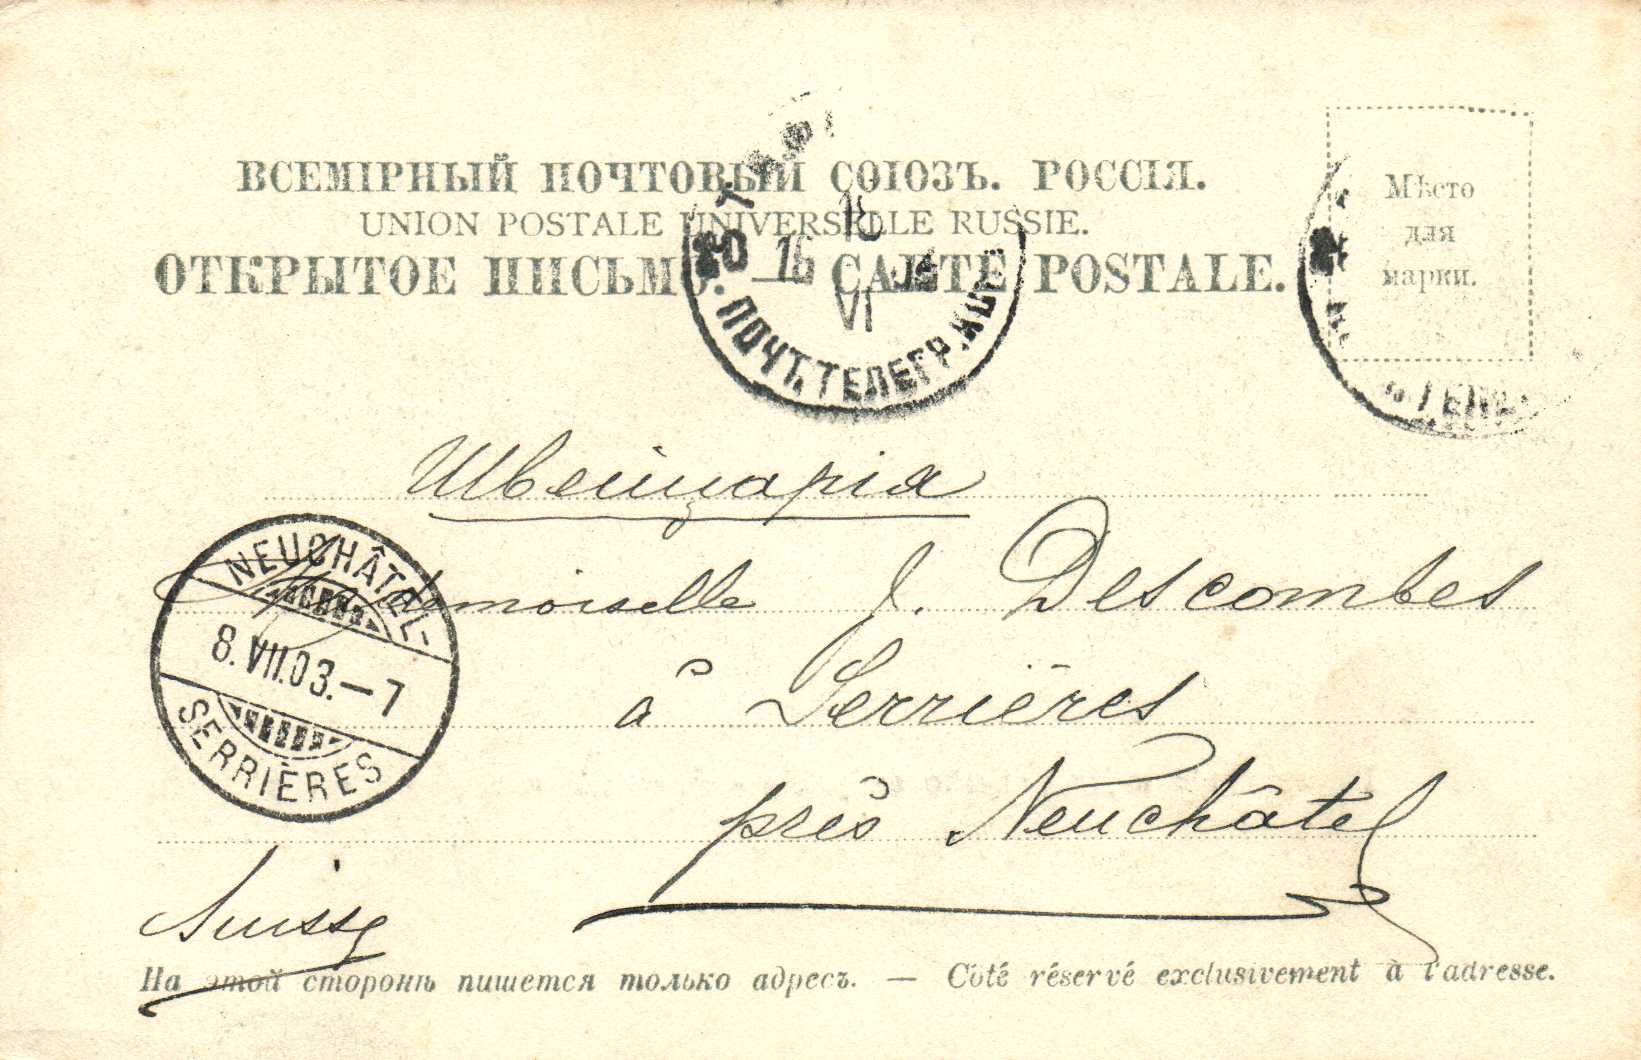 ВСЕМІРНЫЙ ПОЧТОВЫЙ СОЮЗЪ. РОССІЯ.
UNION POSTALE UNIVERSELLE RUSSIE.
ОТКРЫТОЕ ПИСЬМО. CARTE POSTALE.
Мѣсто
для
марки.
16
VI
ПОЧТ. ТЕЛЕГР.
Швейцарія
Mademoiselle J. Descombes
à Serrières
près Neuchâtel
Suisse
NEUCHÂTEL-
8.VII.03.–7
SERRIÈRES
На этой сторонѣ пишется только адресъ. — Côté réservé exclusivement à l'adresse.